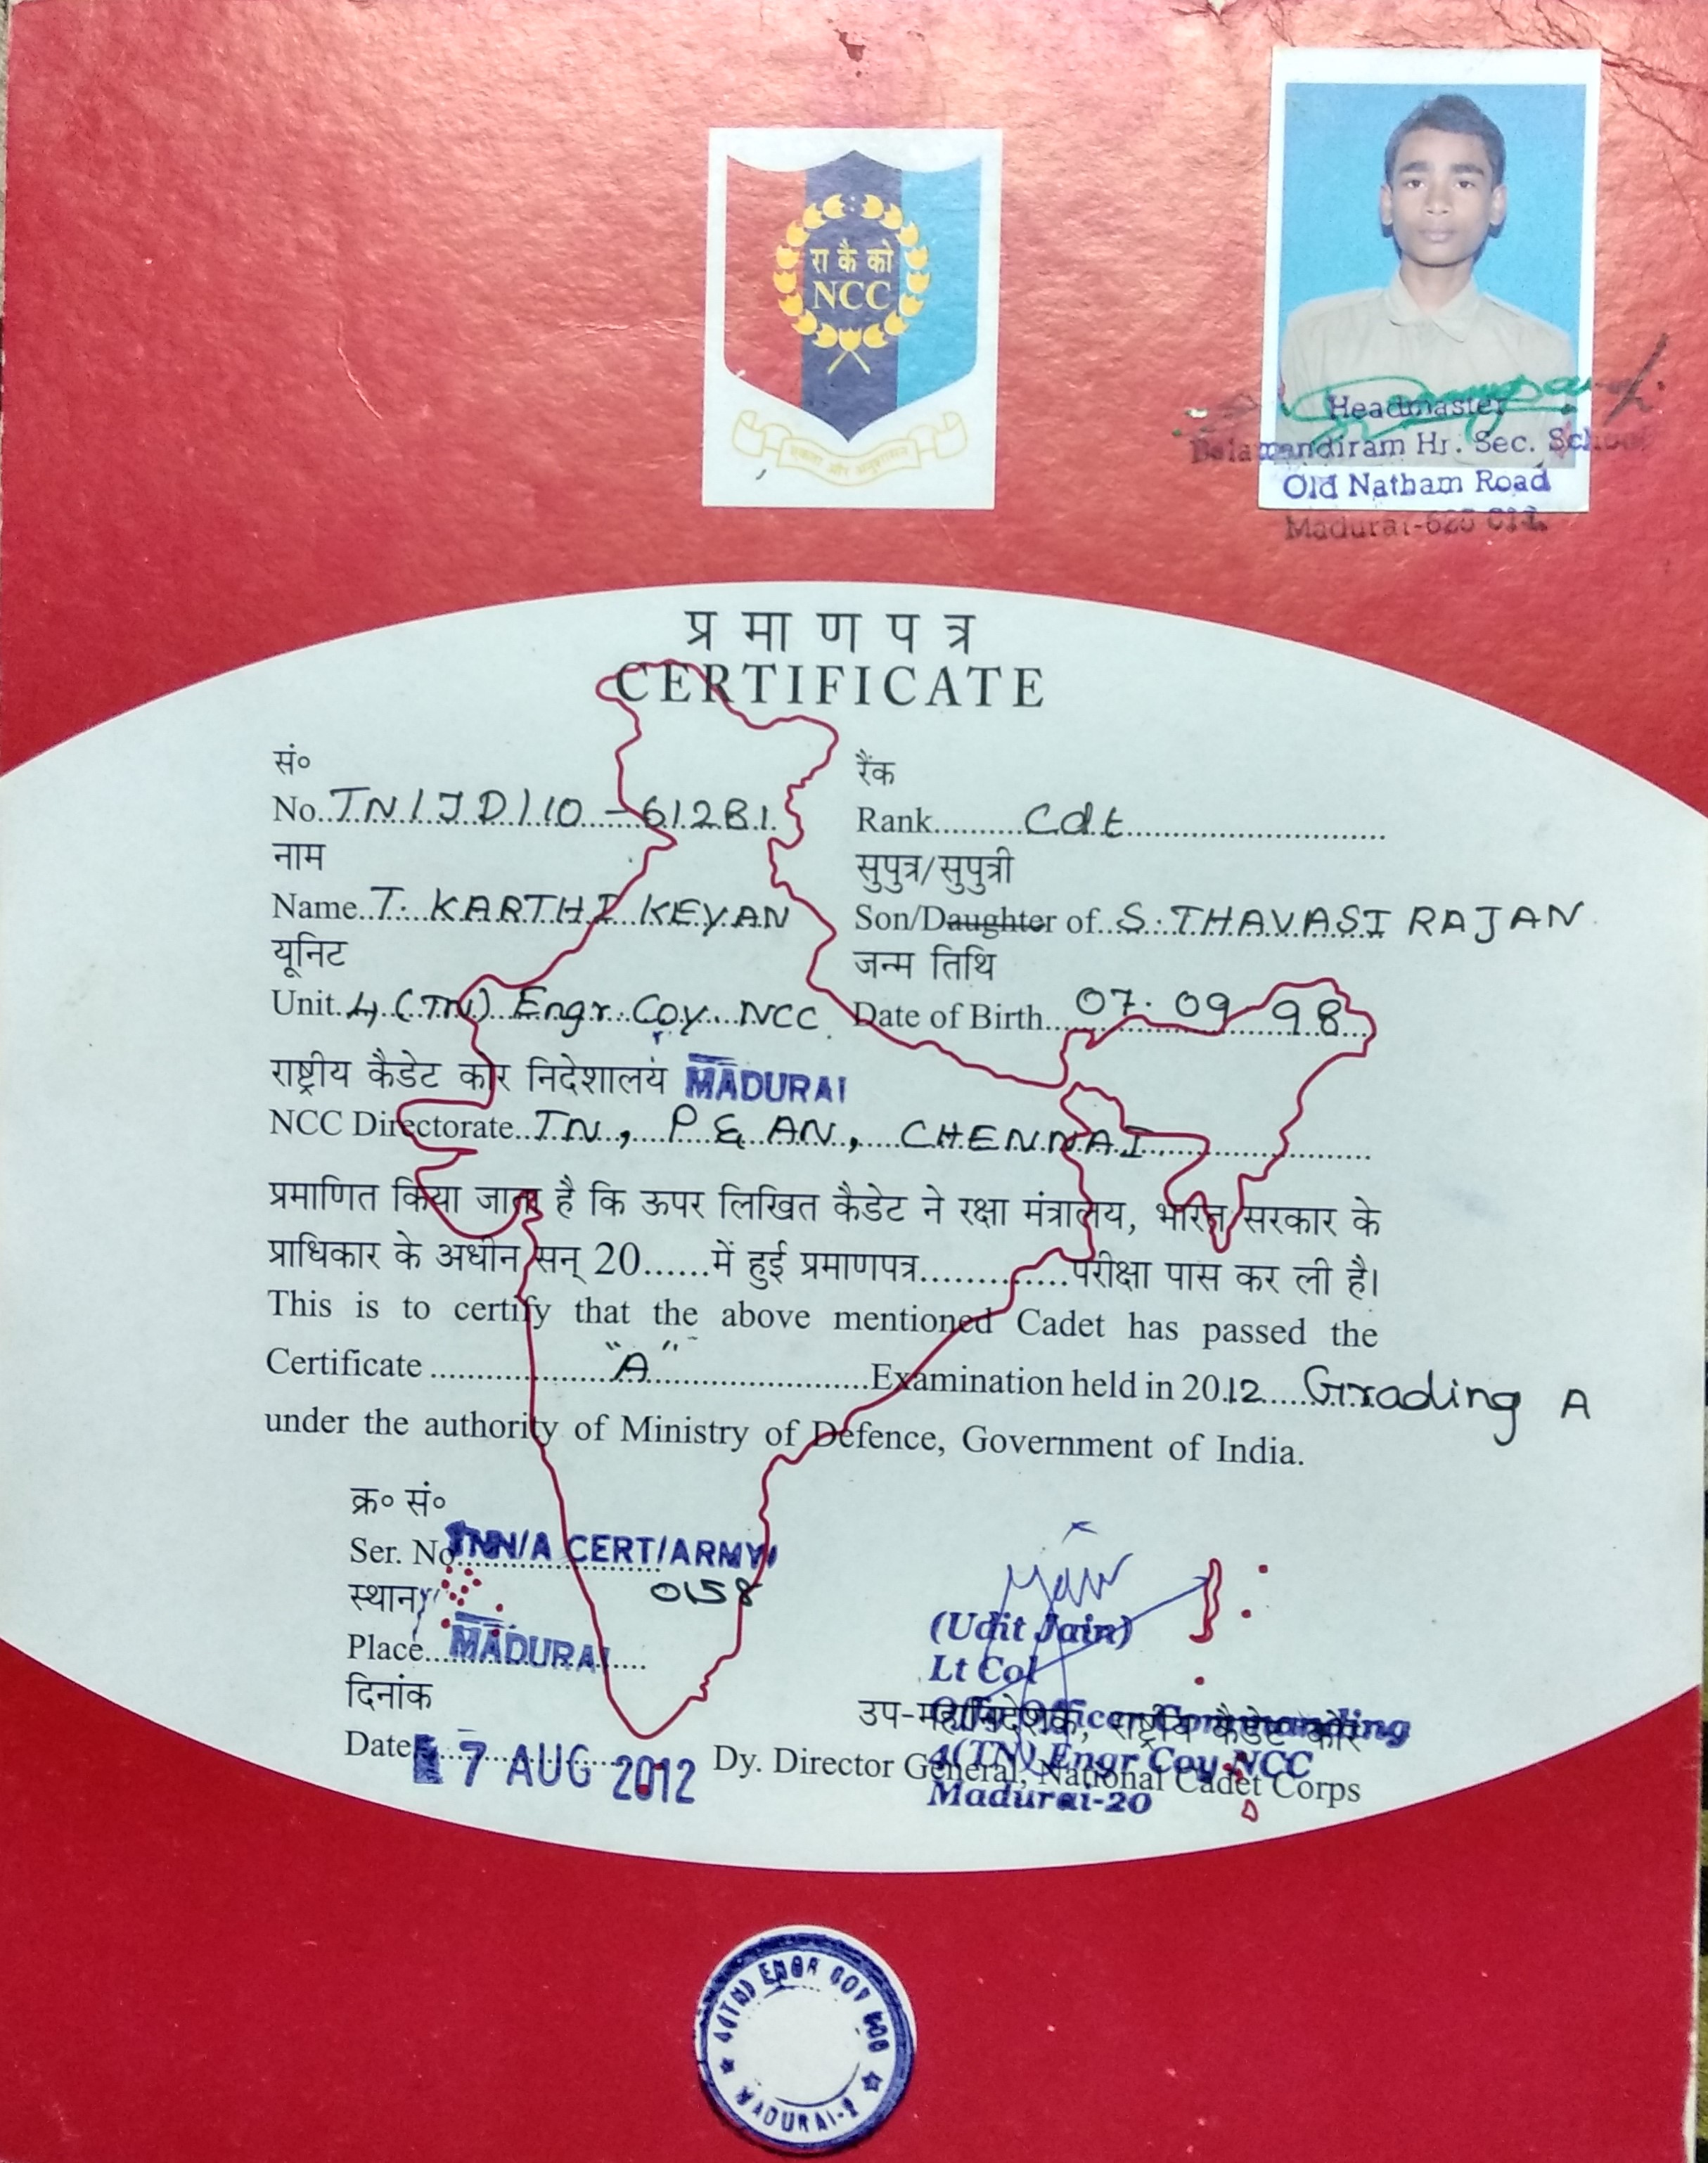 रा कै को
NCC
एकता और अनुशासन
Headmaster
Balamandiram Hr. Sec. School
Old Natham Road
Madurai-625
प्रमाणपत्र
CERTIFICATE
सं०
No. TN/JD/10-61281
रैंक
Rank Cdt
नाम
Name T. KARTHIKEYAN
सुपुत्र/सुपुत्री
Son/Daughter of S. THAVASI RAJAN
यूनिट
Unit 4 (TN) Engr. Coy. NCC
जन्म तिथि
Date of Birth 07.09.98
राष्ट्रीय कैडेट कोर निदेशालय MADURAI
NCC Directorate TN, P & AN, CHENNAI
प्रमाणित किया जाता है कि ऊपर लिखित कैडेट ने रक्षा मंत्रालय, भारत सरकार के
प्राधिकार के अधीन सन् 20......में हुई प्रमाणपत्र.............परीक्षा पास कर ली है।
This is to certify that the above mentioned Cadet has passed the
Certificate "A" Examination held in 2012 Grading A
under the authority of Ministry of Defence, Government of India.
क्र० सं०
Ser. No. TNN/A CERT/ARMY/
0158
स्थान
Place MADURAI
दिनांक
Date 7 AUG 2012
(Udit Jain)
Lt Col
Officer Commanding
4(TN) Engr Coy NCC
Madurai-20
उप-महानिदेशक, राष्ट्रीय कैडेट कोर
Dy. Director General, National Cadet Corps
4(TN) ENGR COY NCC
MADURAI-2